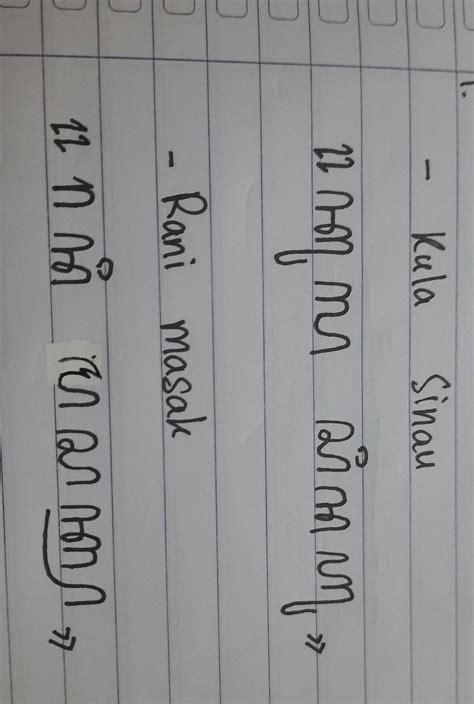 1.
- Kula Sinau
꧋ꦏꦸꦭ ꦱꦶꦤꦲꦸ꧉
- Rani masak
꧋ꦫꦤꦶ ꦩꦱꦏ꧀꧉